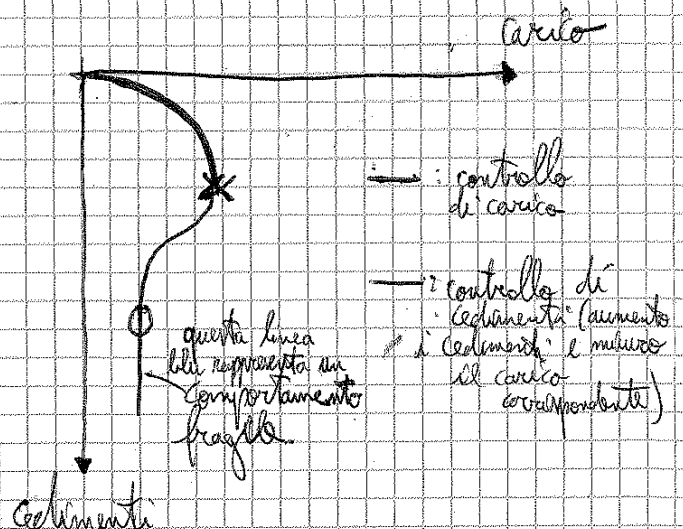 carico
: controllo
di carico
: controllo di
cedimenti (aumento
i cedimenti e misuro
il carico
corrispondente)
questa linea
blu rappresenta un
comportamento
fragile.
cedimenti